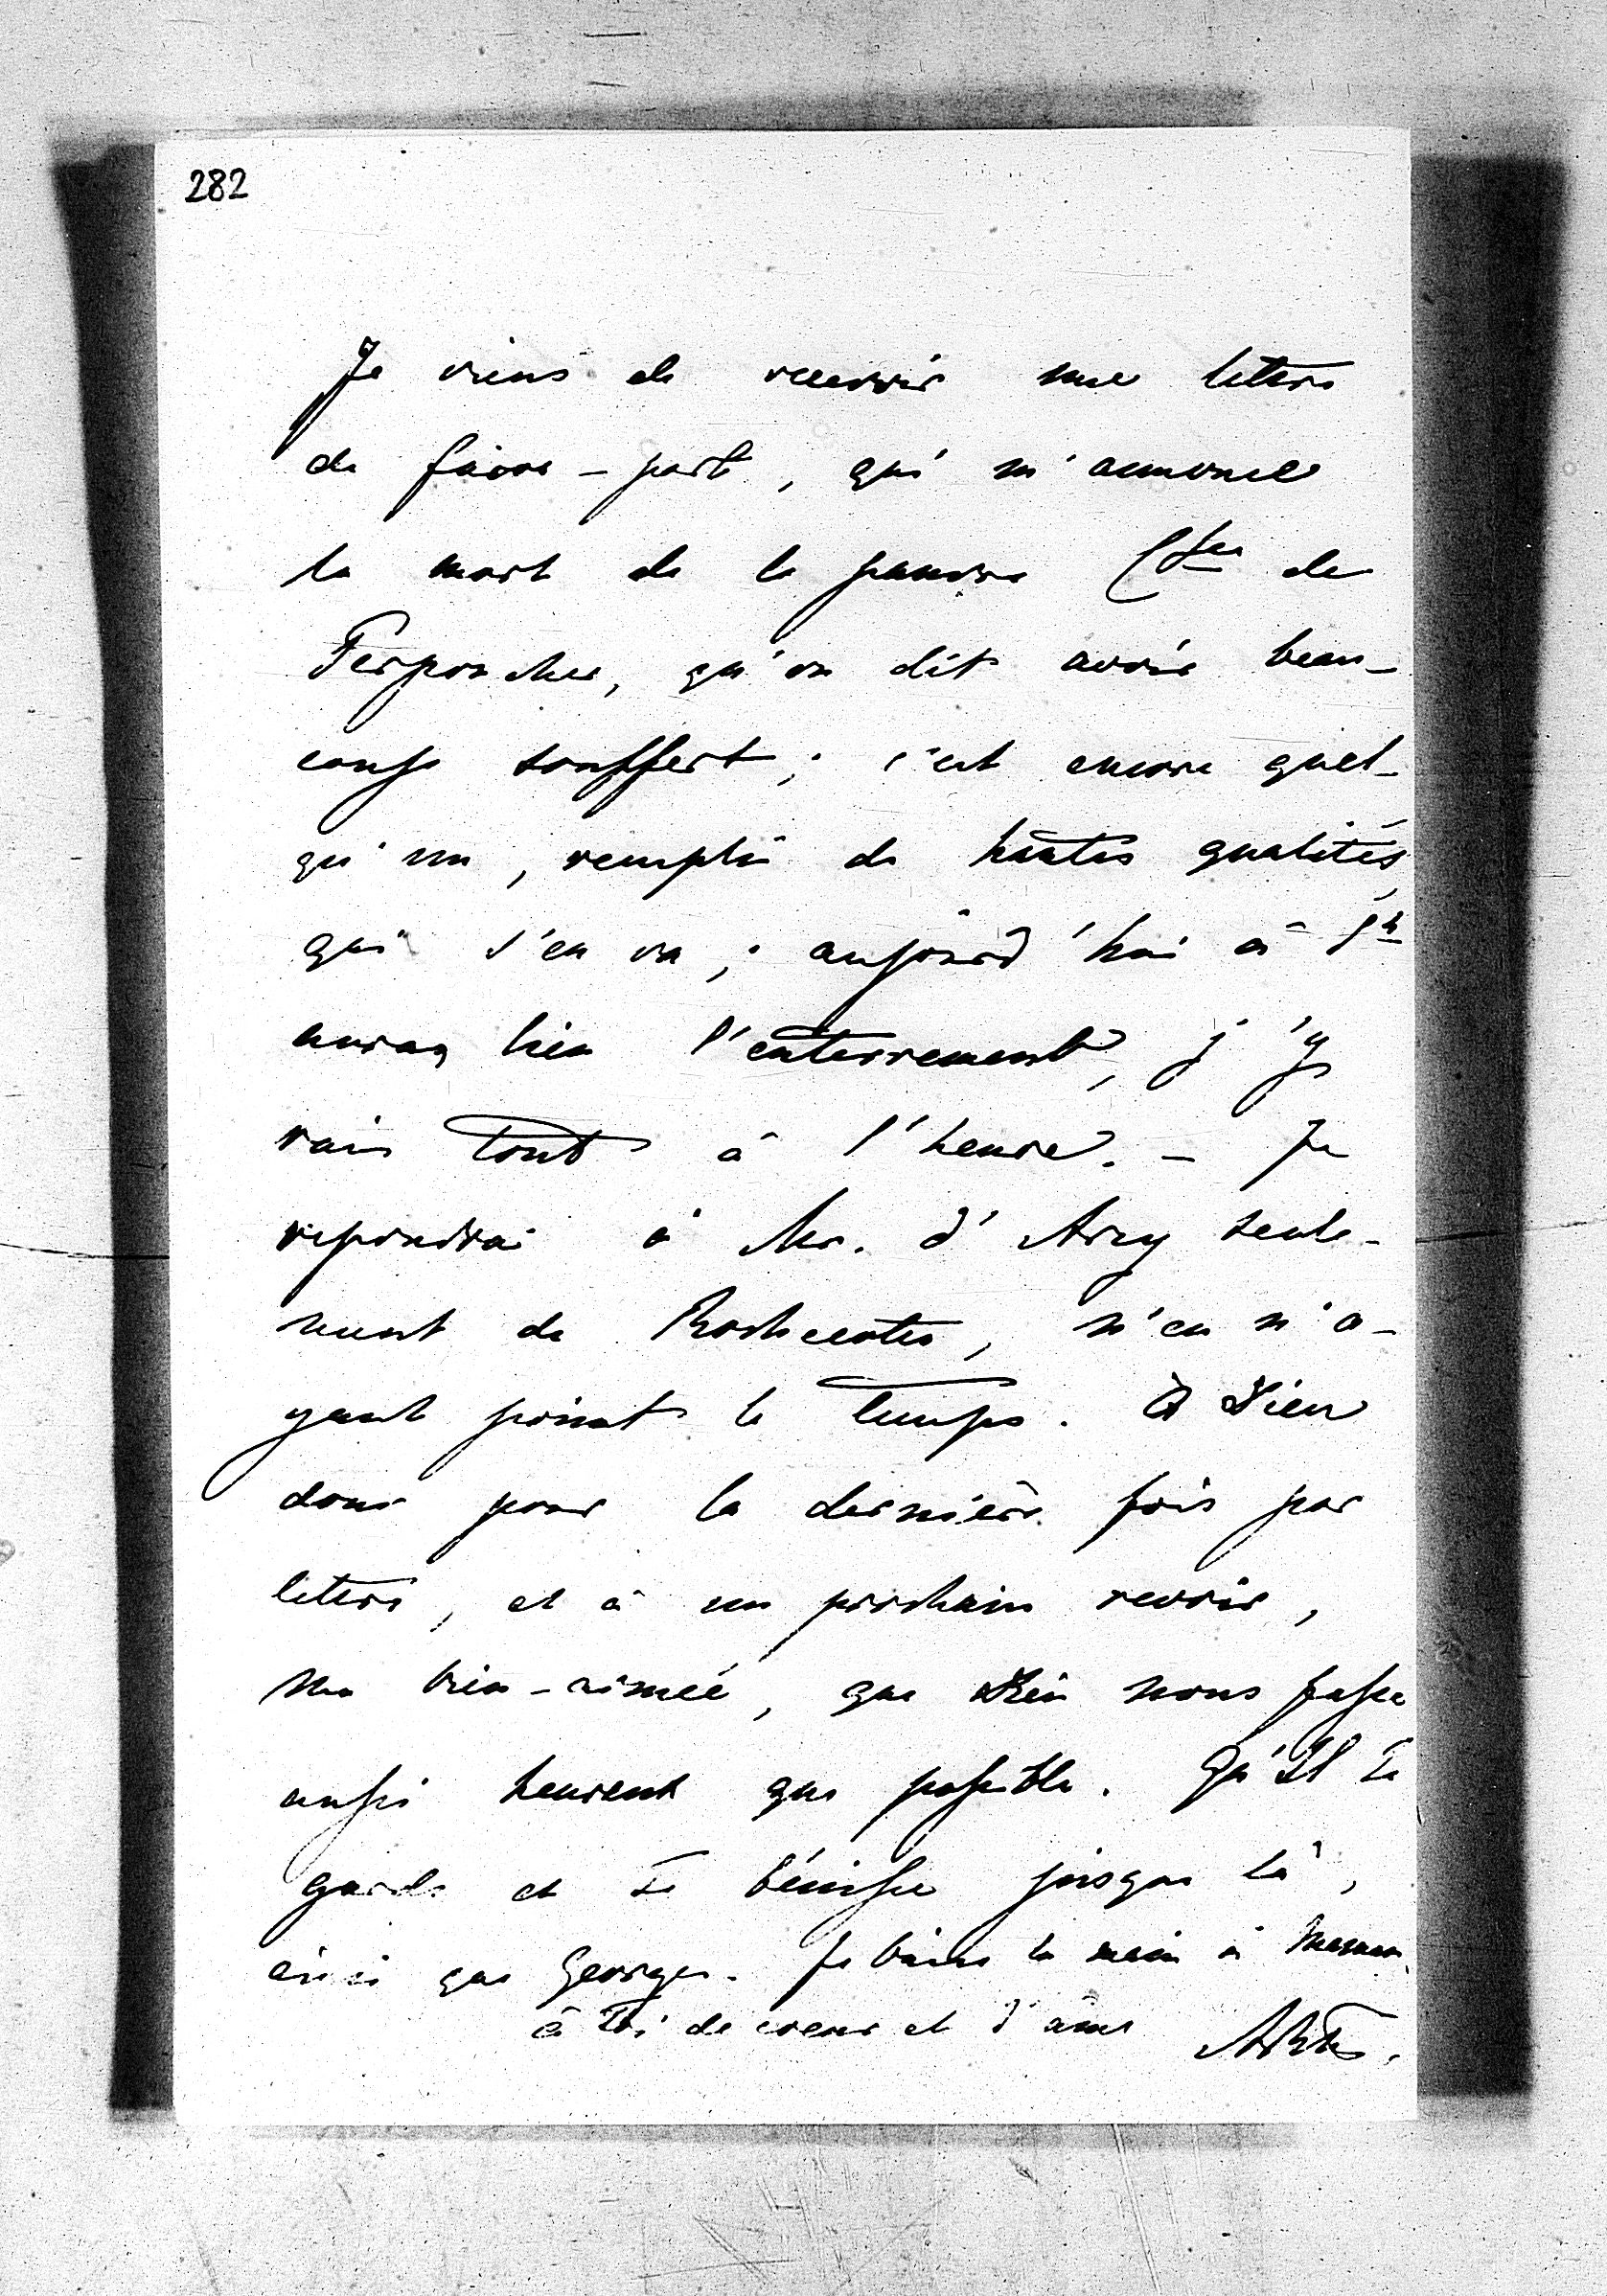 282
Je viens de recevoir une lettre
de faire-part, qui m'annonce
la mort de la pauvre Ctsse de
Perponcher, qu'on dit avoir beau-
coup souffert; c'est encore quel-
qu'un, rempli de hautes qualités,
qui s'en va; aujourd'hui à
aura lieu l'enterrement, j'y
vais tout à l'heure. - Je
répondrai à Mr. d'Arcy seule-
ment de Rochecotte, n'en n'a-
yant point le temps. A Dieu
donc pour la dernière fois par
lettre, et à un prochain revoir,
ma bien-aimée, que Dieu nous fasse
aussi heureux que possible. Qu'Il Te
garde et Te bénisse jusque là,
ainsi que Georges. Je baise la main à Maman.
à Toi de coeur et d'âme